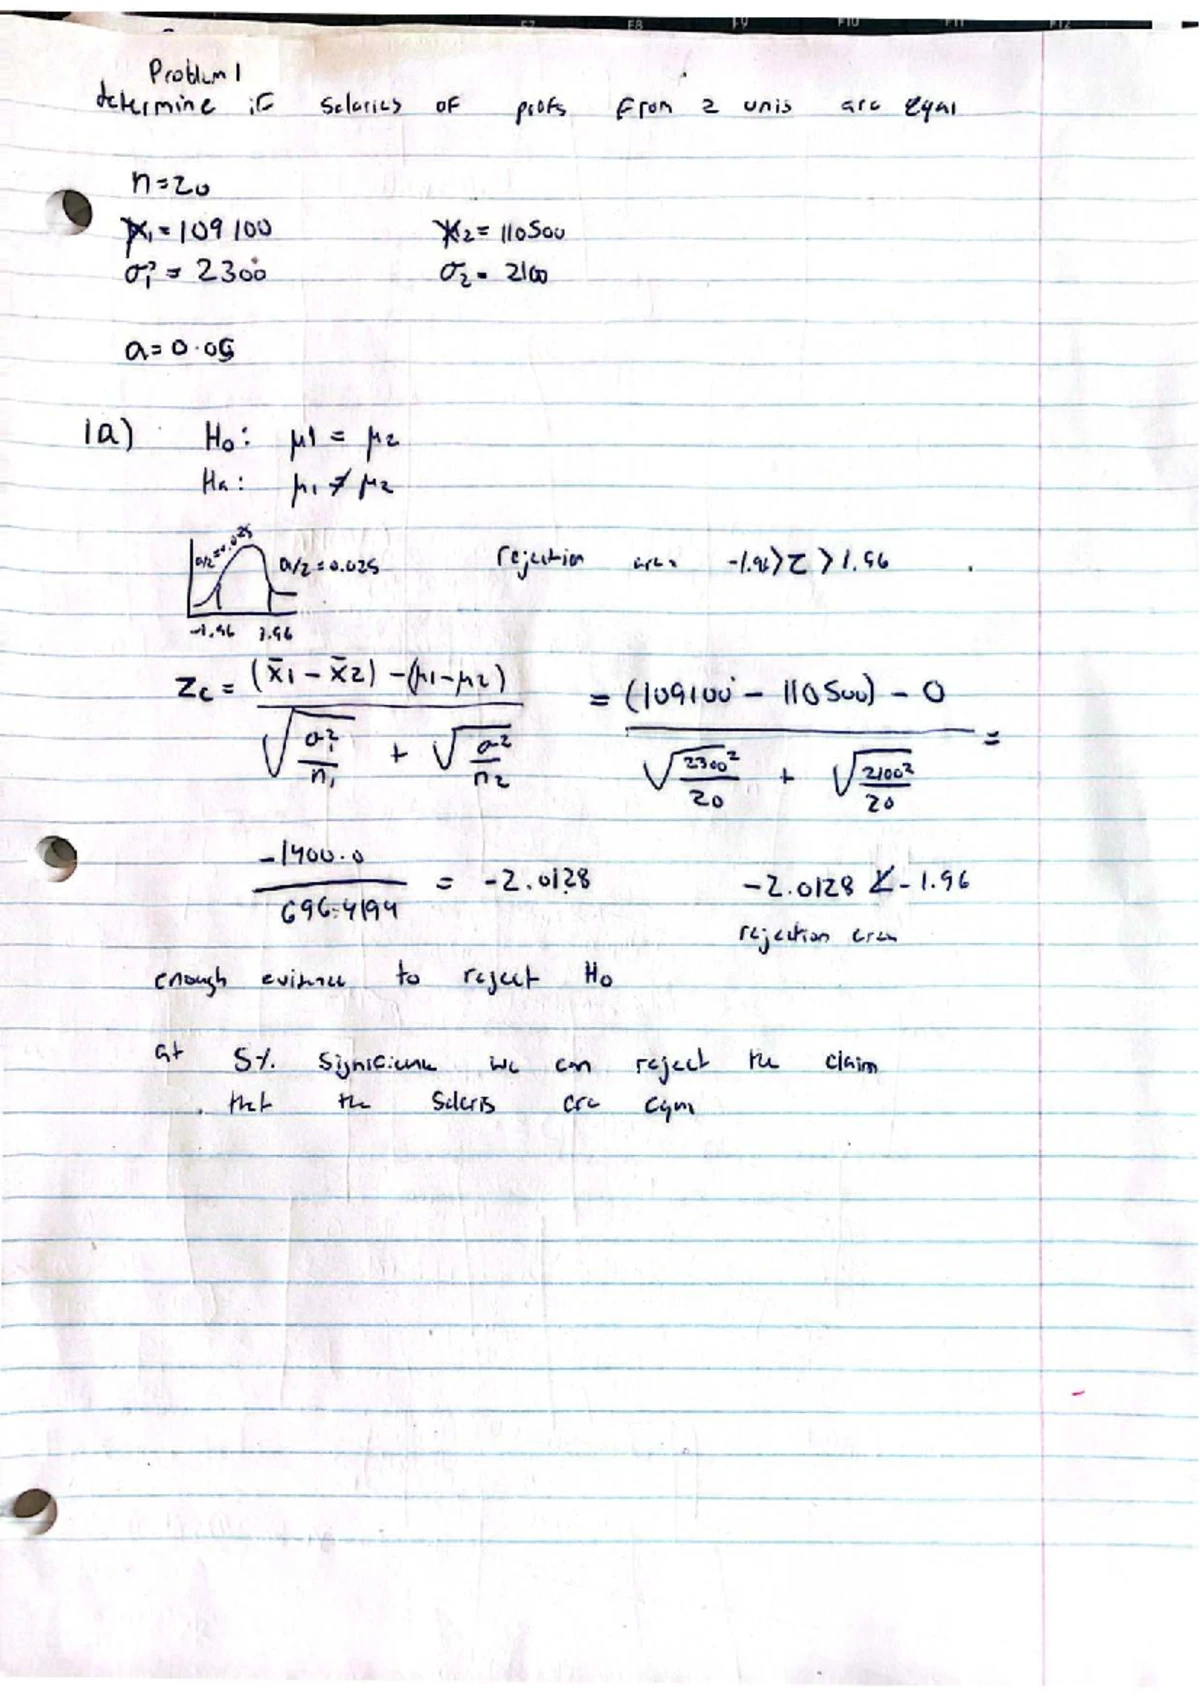 F7 F8 F9 F10 F11 F12
Problem 1
determine if salaries of profs from 2 unis are equal
n=20
x̄₁ = 109100 x̄₂ = 110500
σ₁² = 2300 σ₂ = 2100
a = 0.05
1a) H₀: μ1 = μ₂
Ha: μ₁ ≠ μ₂
a/2=0.025 a/2=0.025 rejection area -1.96>Z>1.96
-1.96 1.96
Zc = (x̄1 - x̄2) - (μ1-μ2) / √σ₁²/n₁ + √σ²/n2 = (109100 - 110500) - 0 / √2300²/20 + √2100²/20 =
-1400.0 / 696.4194 = -2.0128 -2.0128 < -1.96
rejection area
enough evidence to reject H₀
at 5% significance we can reject the claim
that the salaries are equal